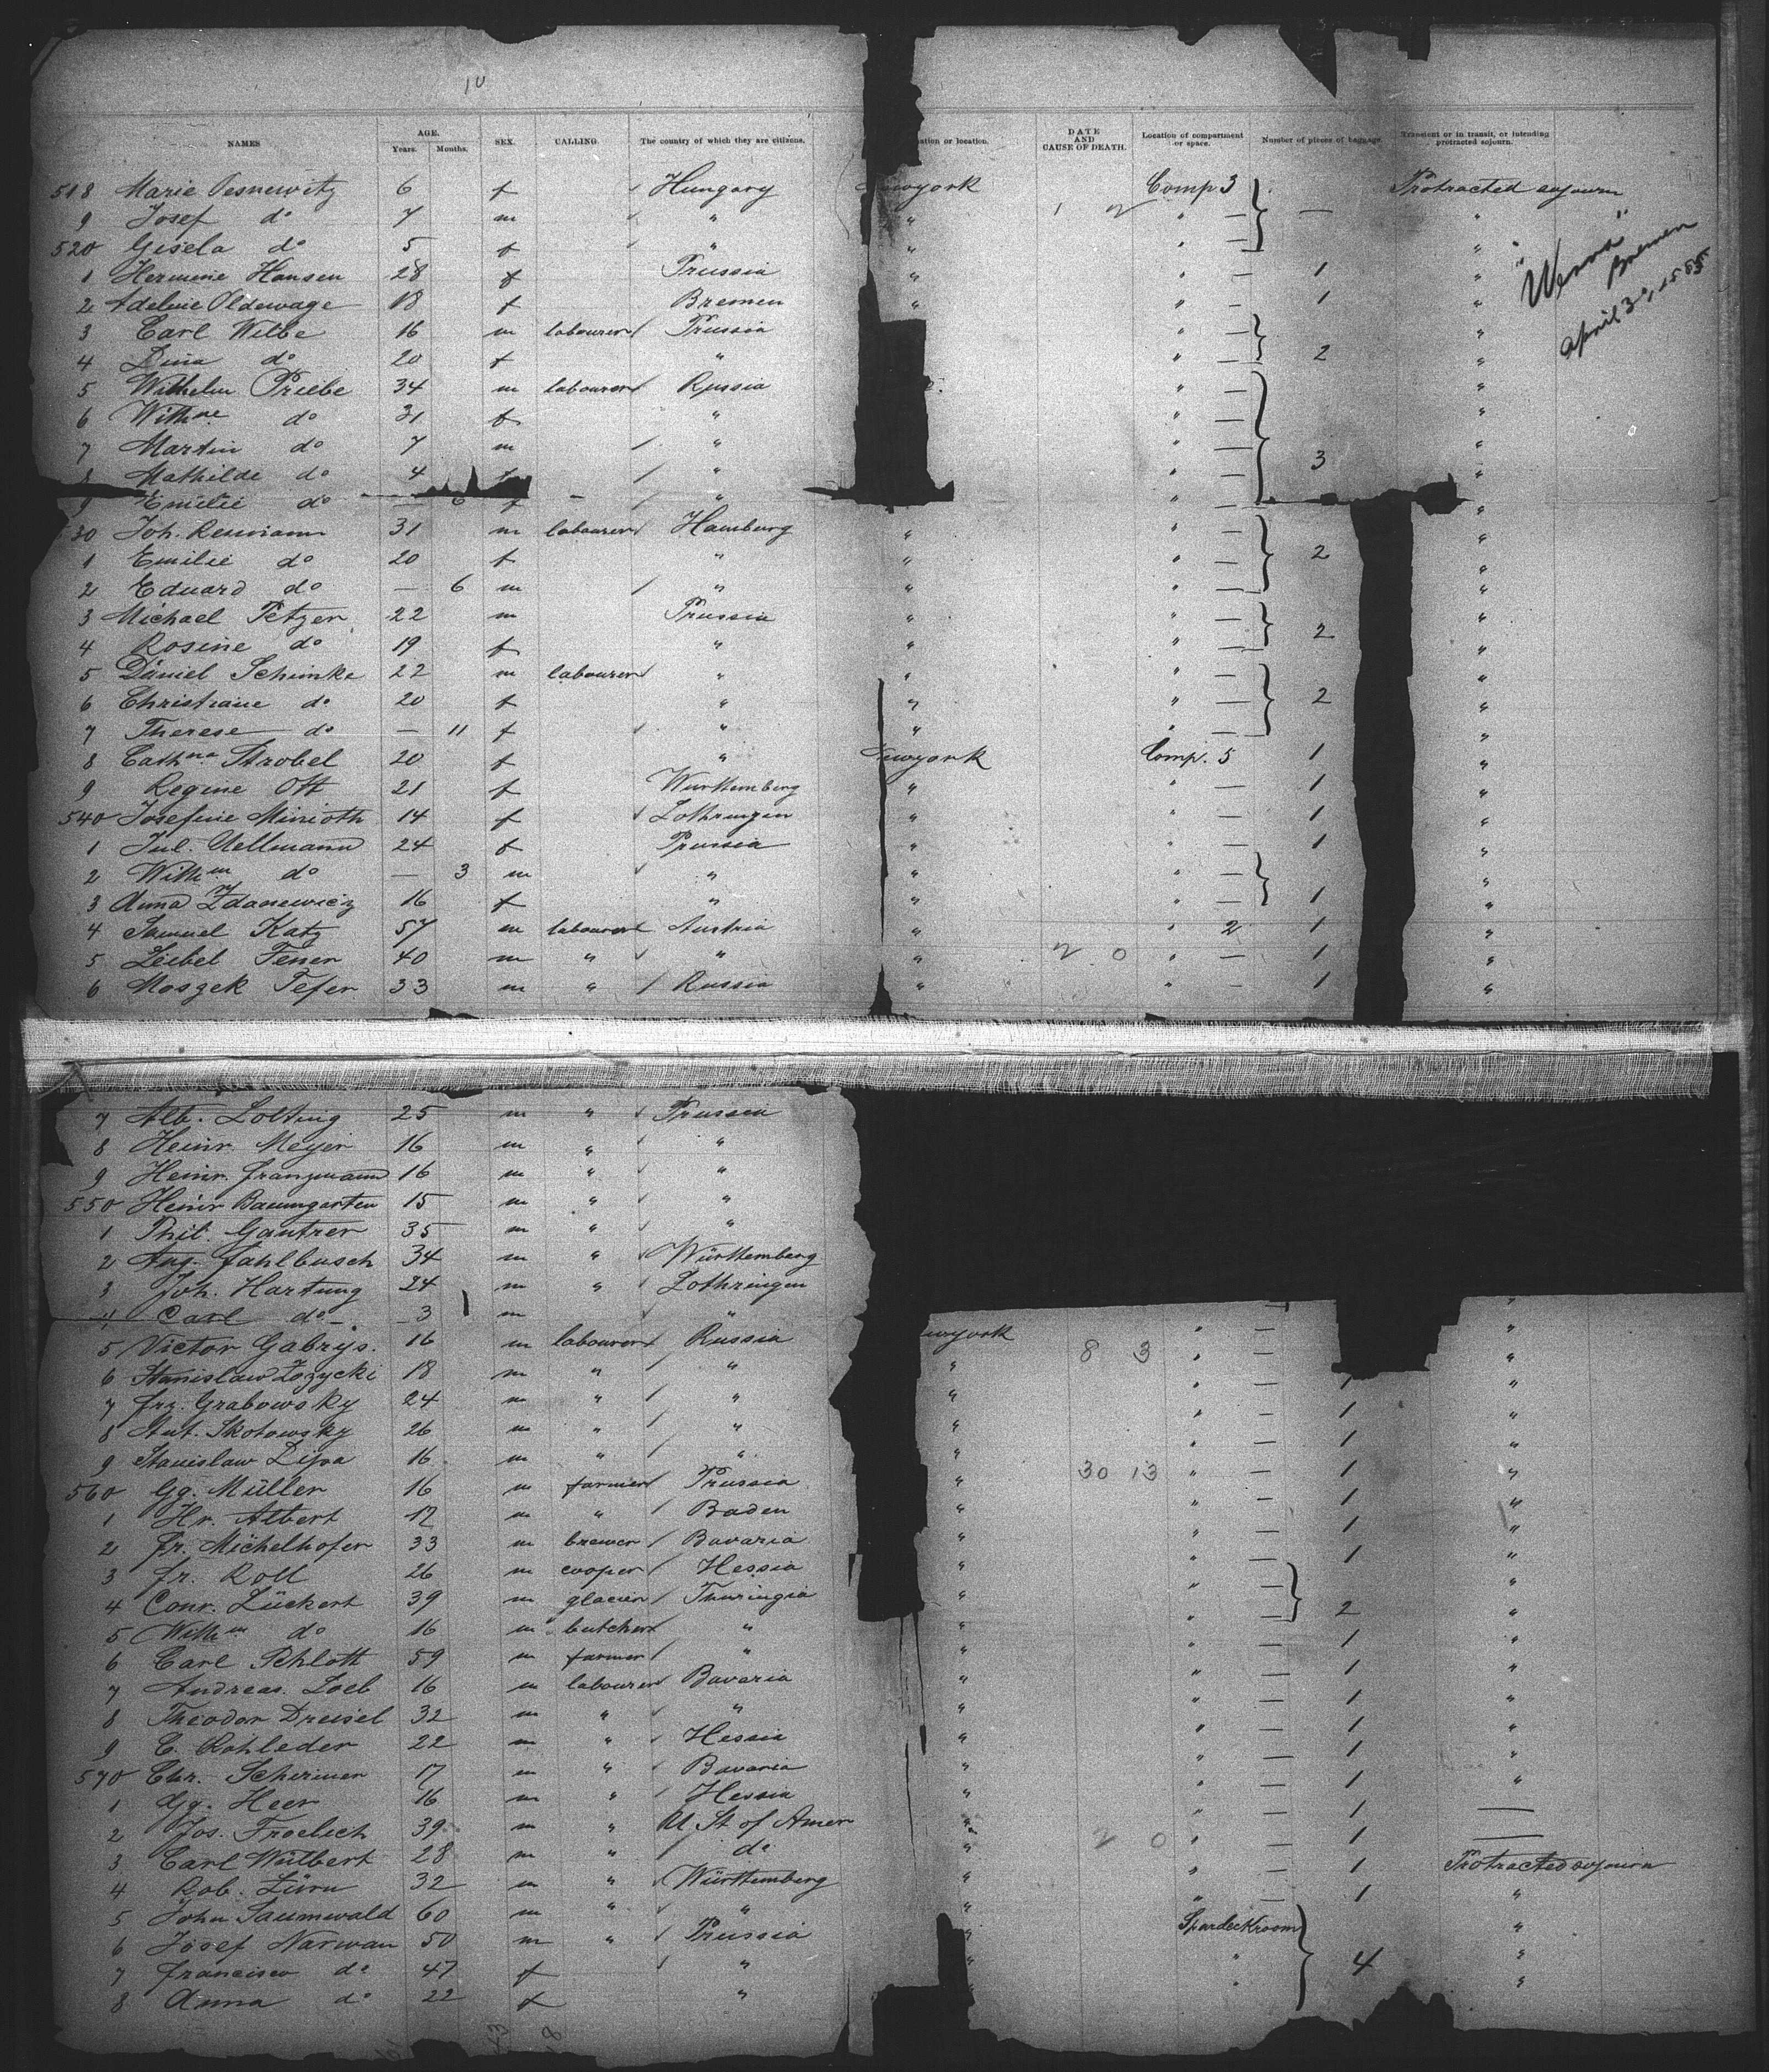 10
NAMES AGE. Years. Months. SEX. CALLING. The country of which they are citizens. ation or location. DATE AND CAUSE OF DEATH. Location of compartment or space. Number of pieces of baggage. Transient or in transit, or intending protracted sojourn.
518 Marie 6 f Hungary ewyork Comp 3 Protracted sojourn
9 Josef do 7 m " " 1 2 " — — "
520 Gisela do 5 f " " " — "
1 Hermine Hansen 28 f Prussia " " — 1 "
2 Adeline Oldewage 18 f Bremen " " — 1 "
"Werra" Bremen
April 3d, 1885
3 Carl Wilbe 16 m labourer Prussia " — "
4 Dina do 20 f " " — 2 "
5 Wilhelm Priebe 34 m labourer Russia " — "
6 Wilhne do 31 f " " — "
7 Martin do 7 m " " — "
8 Mathilde do 4 f " " — 3 "
9 Emilie do — 6 f — " " — "
30 Joh. Reumann 31 m labourer Hamburg " " — "
1 Emilie do 20 f " " " — 2 "
2 Eduard do — 6 m " " " — "
3 Michael Petzer 22 m Prussia " " — "
4 Rosine do 19 f " " " — 2 "
5 Daniel Schimke 22 m labourer " " " — "
6 Christiane do 20 f " " " — 2 "
7 Therese do — 11 f " " " — "
8 Cathna Strobel 20 f " ewyork Comp. 5 1 "
9 Regine Ott 21 f Wurttemberg " " — 1 "
540 Josefine Minioth 14 f Lothringen " " — 1 "
1 Jul. Uellmann 24 f Prussia " " — 1 "
2 Wilhm do — 3 m " " " — "
3 Anna Zdanewicz 16 f " " " — 1 "
4 Samuel Katz 57 m labourer Austria " " 2 1 "
5 Leibel Fener 40 m " " " 2 0 " — 1 "
6 Moszek Tefer 33 m " Russia " " — 1 "
7 Alb. Lolting 25 m " Prussia
8 Heinr. Meyer 16 m " "
9 Heinr. Franzmann 16 m " "
550 Heinr Baumgarten 15 m " "
1 Phil. Gantzer 35 m " "
2 Aug. Fahlbusch 34 m " Württemberg
3 Joh. Hartung 24 m " Lothringen
4 Carl do 3 m " " — "
5 Victor Gabrys. 16 m labourer Russia ewyork 8 3 " — "
6 Stanislaw Lozycki 18 m " " " " — 1 "
7 Frz. Grabowsky 24 m " " " " — 1 "
8 Ant. Skotowsky 26 m " " " " — 1 "
9 Stanislaw Lipa 16 m " " " 30 13 " — 1 "
560 Gg. Müller 16 m farmer Prussia " " — 1 "
1 Hr. Albert 17 m " Baden " " — 1 "
2 Fr. Michelhofer 33 m brewer Bavaria " " — 1 "
3 Fr. Roll 26 m cooper Hessia " " — "
4 Conr. Lückert 39 m glacier Thuringia " " — 2 "
5 Wilhm do 16 m butcher " " " — 1 "
6 Carl Schlott 59 m farmer " " " — 1 "
7 Andreas Loeb 16 m labourer Bavaria " " — 1 "
8 Theodor Dreisel 32 m " " " " — 1 "
9 C. Rohleder 22 m " Hessia " " — 1 "
570 Chr. Schirmer 17 m " Bavaria " " — 1 "
1 Gg. Heer 16 m " Hessia " " — 1 —
2 Jos. Froelich 39 m " U St of Amer " 2 0 " — 1 —
3 Carl Wülbert 28 m " do " " — 1 Protracted sojourn
4 Rob. 32 m " Württemberg " " — 1 "
5 John Saumwald 60 m " " " Spardeckroom "
6 Josef Narwan 50 m " Prussia " " 4 "
7 Francisca do 47 f " " " "
8 Anna do 22 f "
43 18